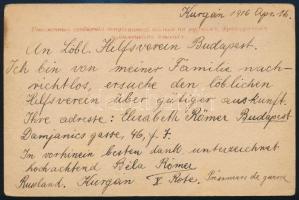 Kurgán 1916 Apr. 16.
An Löbl. Helfsverein Budapest.
Ich bin von meiner Familie nach-
richtlos, ersuche den löblichen
Helfsverein über gütiger auskunft.
Ihre adresse: Elisabeth Römer Budapest
Damjanics gasse, 46, f. 7.
In vorhinein besten dank unterzeichnet
hochachtend Béla Römer
Russland. Kurgán V Rote. Prisonniers de guerre